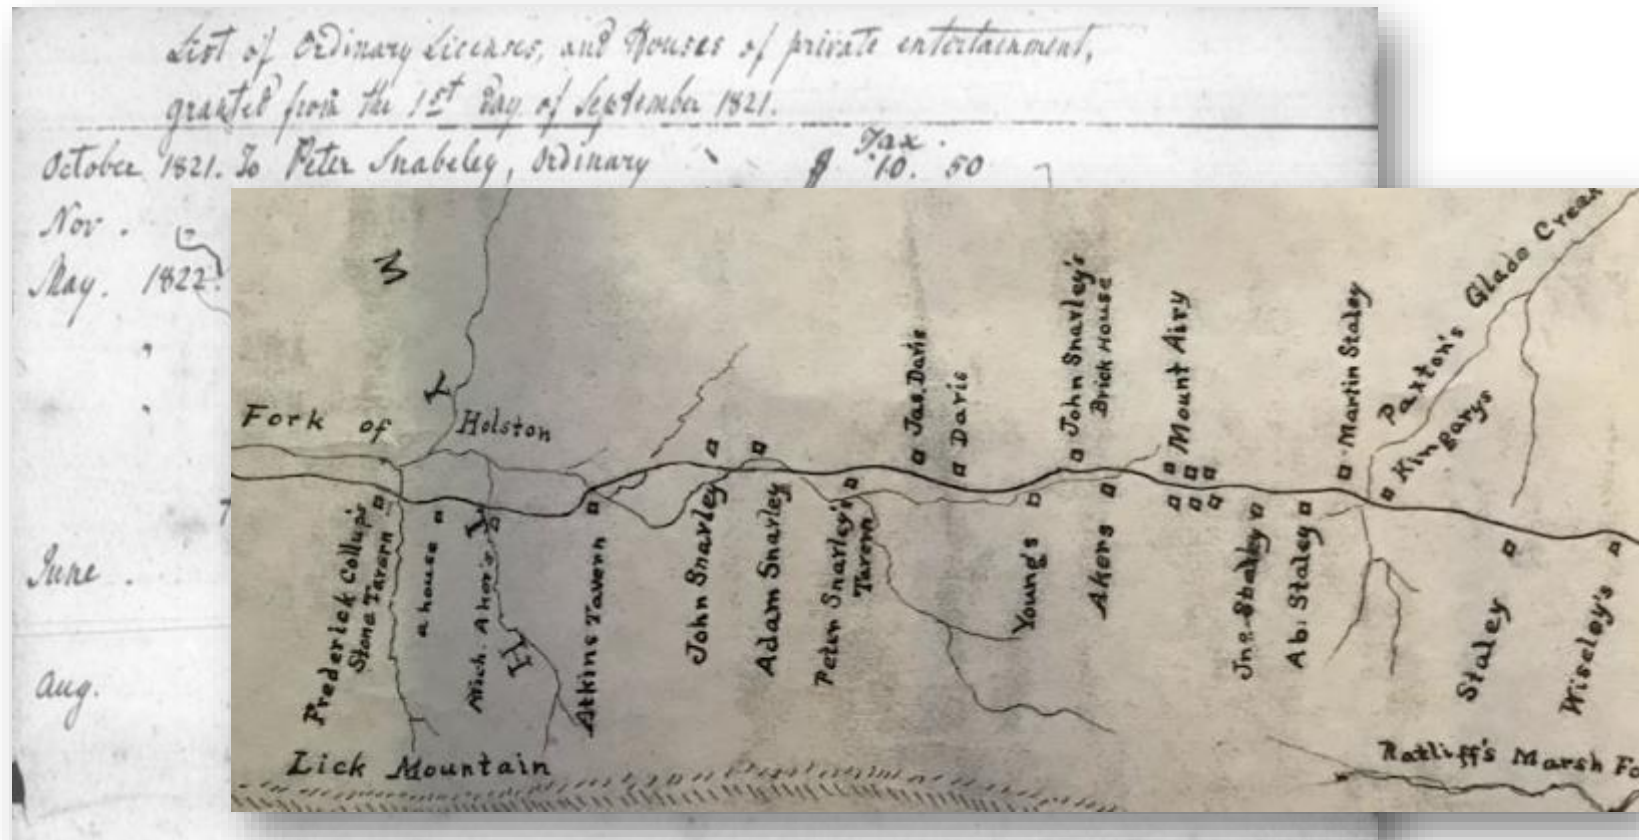 List of Ordinary Licenses, and Houses of private entertainment,
granted from the 1st day of September 1821.
Tax
October 1821. To Peter Snabeley, Ordinary $ 10. 50
Nov.
May. 1822.
"
"
June.
Aug.
W
Y
Fork of Holston
Frederick Collup's
Stone Tavern
a house
Mich. Ahor's
H
Atkins Tavern
John Snarley
Adam Snarley
Peter Snarley's
Tavern
Jas. Davis
Davis
Young's
John Snarley's
Brick House
Akers
Mount Airy
Jno. Staley
Ab. Staley
Martin Staley
Kingarys
Paxton's Glade Creak
Staley
Wiseley's
Lick Mountain
Ratliff's Marsh Fo